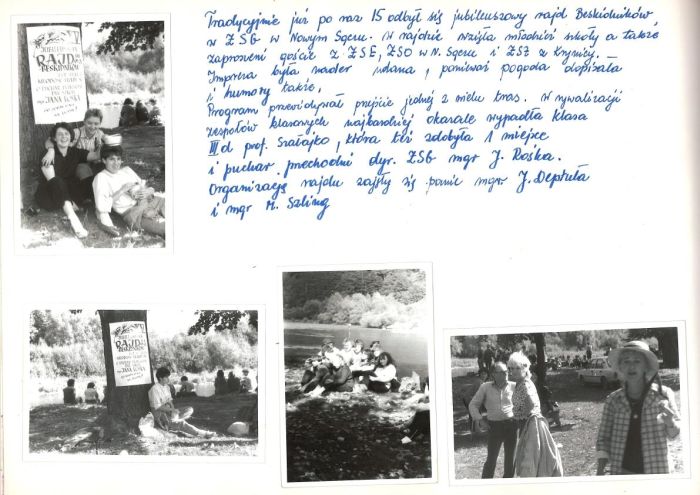 Tradycyjnie już po raz 15 odbył się jubileuszowy rajd Beskidników,
w ZSB w Nowym Sączu. W rajdzie wzięła młodzież szkoły a także
zaproszeni goście z ZSE, ZSO w N. Sączu i ZSZ z Krynicy.
Impreza była nader udana, ponieważ pogoda dopisała
i humory także,
Program przewidywał przejście jednej z wielu tras. W rywalizacji
zespołów klasowych najbardziej okazale wypadła klasa
III d prof. Szafajko, która też zdobyła 1 miejsce
i puchar przechodni dyr. ZSB mgr J. Rośka.
Organizacją rajdu zajęły się panie mgr J. Deptuła
i mgr M. Szling
RAJD
BESKIDNIKÓW
RAJD
BESKIDNIKÓW